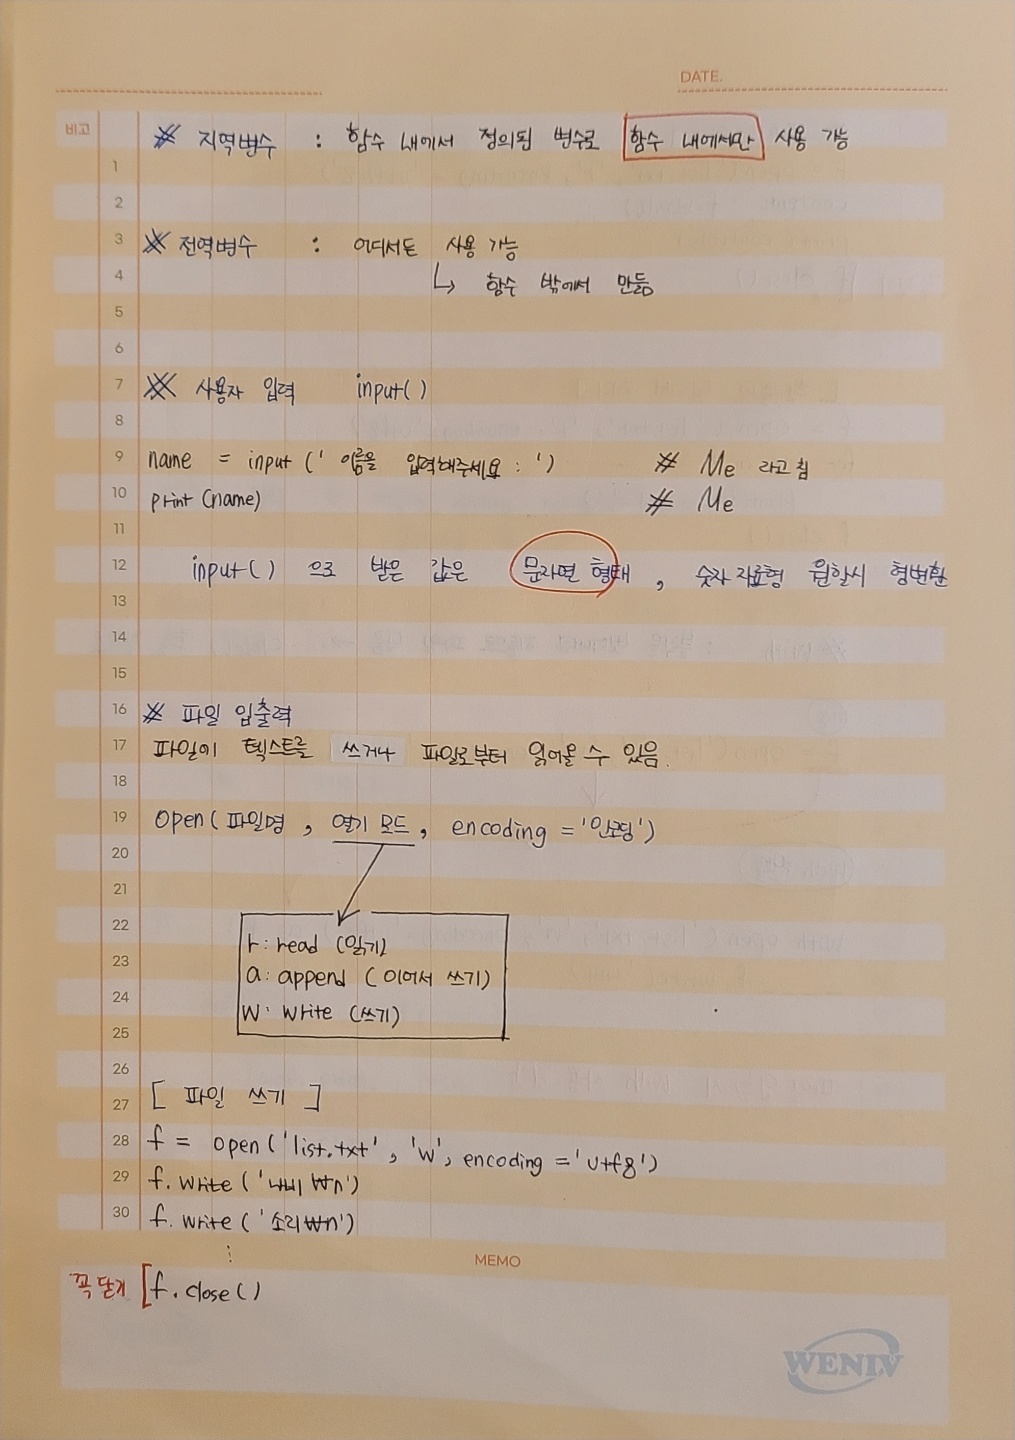 DATE.
비고
# 지역변수 : 함수 내에서 정의된 변수로 함수 내에서만 사용 가능
1
2
3 # 전역변수 : 어디서든 사용 가능
4 ↳ 함수 밖에서 만듦
5
6
7 # 사용자 입력 input()
8
9 name = input ( ' 이름을 입력해주세요 : ' ) # Me 라고 침
10 print (name) # Me
11
12 input() 으로 받은 값은 문자면 형태 , 숫자 자료형 원할시 형변환
13
14
15
16 # 파일 입출력
17 파일에 텍스트를 쓰거나 파일로부터 읽어올 수 있음.
18
19 open( 파일명 , 열기 모드 , encoding = '인코딩')
20
21
22 r : read (읽기)
23 a : append ( 이어서 쓰기)
24 w : write (쓰기)
25
26
27 [ 파일 쓰기 ]
28 f = open ( 'list.txt' , 'w' , encoding = 'utf8')
29 f. write ( '나비 ₩n')
30 f. write ( '소리₩n')
⋮
MEMO
꼭 닫기 [ f. close ()
WENIV